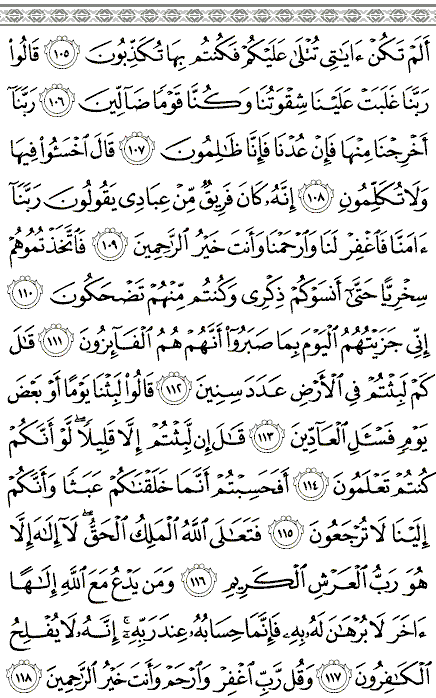 أَلَمْ تَكُنْ ءَايَٰتِى تُتْلَىٰ عَلَيْكُمْ فَكُنتُم بِهَا تُكَذِّبُونَ ١٠٥ قَالُوا۟
رَبَّنَا غَلَبَتْ عَلَيْنَا شِقْوَتُنَا وَكُنَّا قَوْمًا ضَآلِّينَ ١٠٦ رَبَّنَآ
أَخْرِجْنَا مِنْهَا فَإِنْ عُدْنَا فَإِنَّا ظَٰلِمُونَ ١٠٧ قَالَ ٱخْسَـُٔوا۟ فِيهَا
وَلَا تُكَلِّمُونِ ١٠٨ إِنَّهُۥ كَانَ فَرِيقٌ مِّنْ عِبَادِى يَقُولُونَ رَبَّنَآ
ءَامَنَّا فَٱغْفِرْ لَنَا وَٱرْحَمْنَا وَأَنتَ خَيْرُ ٱلرَّٰحِمِينَ ١٠٩ فَٱتَّخَذْتُمُوهُمْ
سِخْرِيًّا حَتَّىٰٓ أَنسَوْكُمْ ذِكْرِى وَكُنتُم مِّنْهُمْ تَضْحَكُونَ ١١٠
إِنِّى جَزَيْتُهُمُ ٱلْيَوْمَ بِمَا صَبَرُوٓا۟ أَنَّهُمْ هُمُ ٱلْفَآئِزُونَ ١١١ قَٰلَ
كَمْ لَبِثْتُمْ فِى ٱلْأَرْضِ عَدَدَ سِنِينَ ١١٢ قَالُوا۟ لَبِثْنَا يَوْمًا أَوْ بَعْضَ
يَوْمٍ فَسْـَٔلِ ٱلْعَآدِّينَ ١١٣ قَٰلَ إِن لَّبِثْتُمْ إِلَّا قَلِيلًا ۖ لَّوْ أَنَّكُمْ
كُنتُمْ تَعْلَمُونَ ١١٤ أَفَحَسِبْتُمْ أَنَّمَا خَلَقْنَٰكُمْ عَبَثًا وَأَنَّكُمْ
إِلَيْنَا لَا تُرْجَعُونَ ١١٥ فَتَعَٰلَى ٱللَّهُ ٱلْمَلِكُ ٱلْحَقُّ ۖ لَآ إِلَٰهَ إِلَّا
هُوَ رَبُّ ٱلْعَرْشِ ٱلْكَرِيمِ ١١٦ وَمَن يَدْعُ مَعَ ٱللَّهِ إِلَٰهًا
ءَاخَرَ لَا بُرْهَٰنَ لَهُۥ بِهِۦ فَإِنَّمَا حِسَابُهُۥ عِندَ رَبِّهِۦٓ ۚ إِنَّهُۥ لَا يُفْلِحُ
ٱلْكَٰفِرُونَ ١١٧ وَقُل رَّبِّ ٱغْفِرْ وَٱرْحَمْ وَأَنتَ خَيْرُ ٱلرَّٰحِمِينَ ١١٨